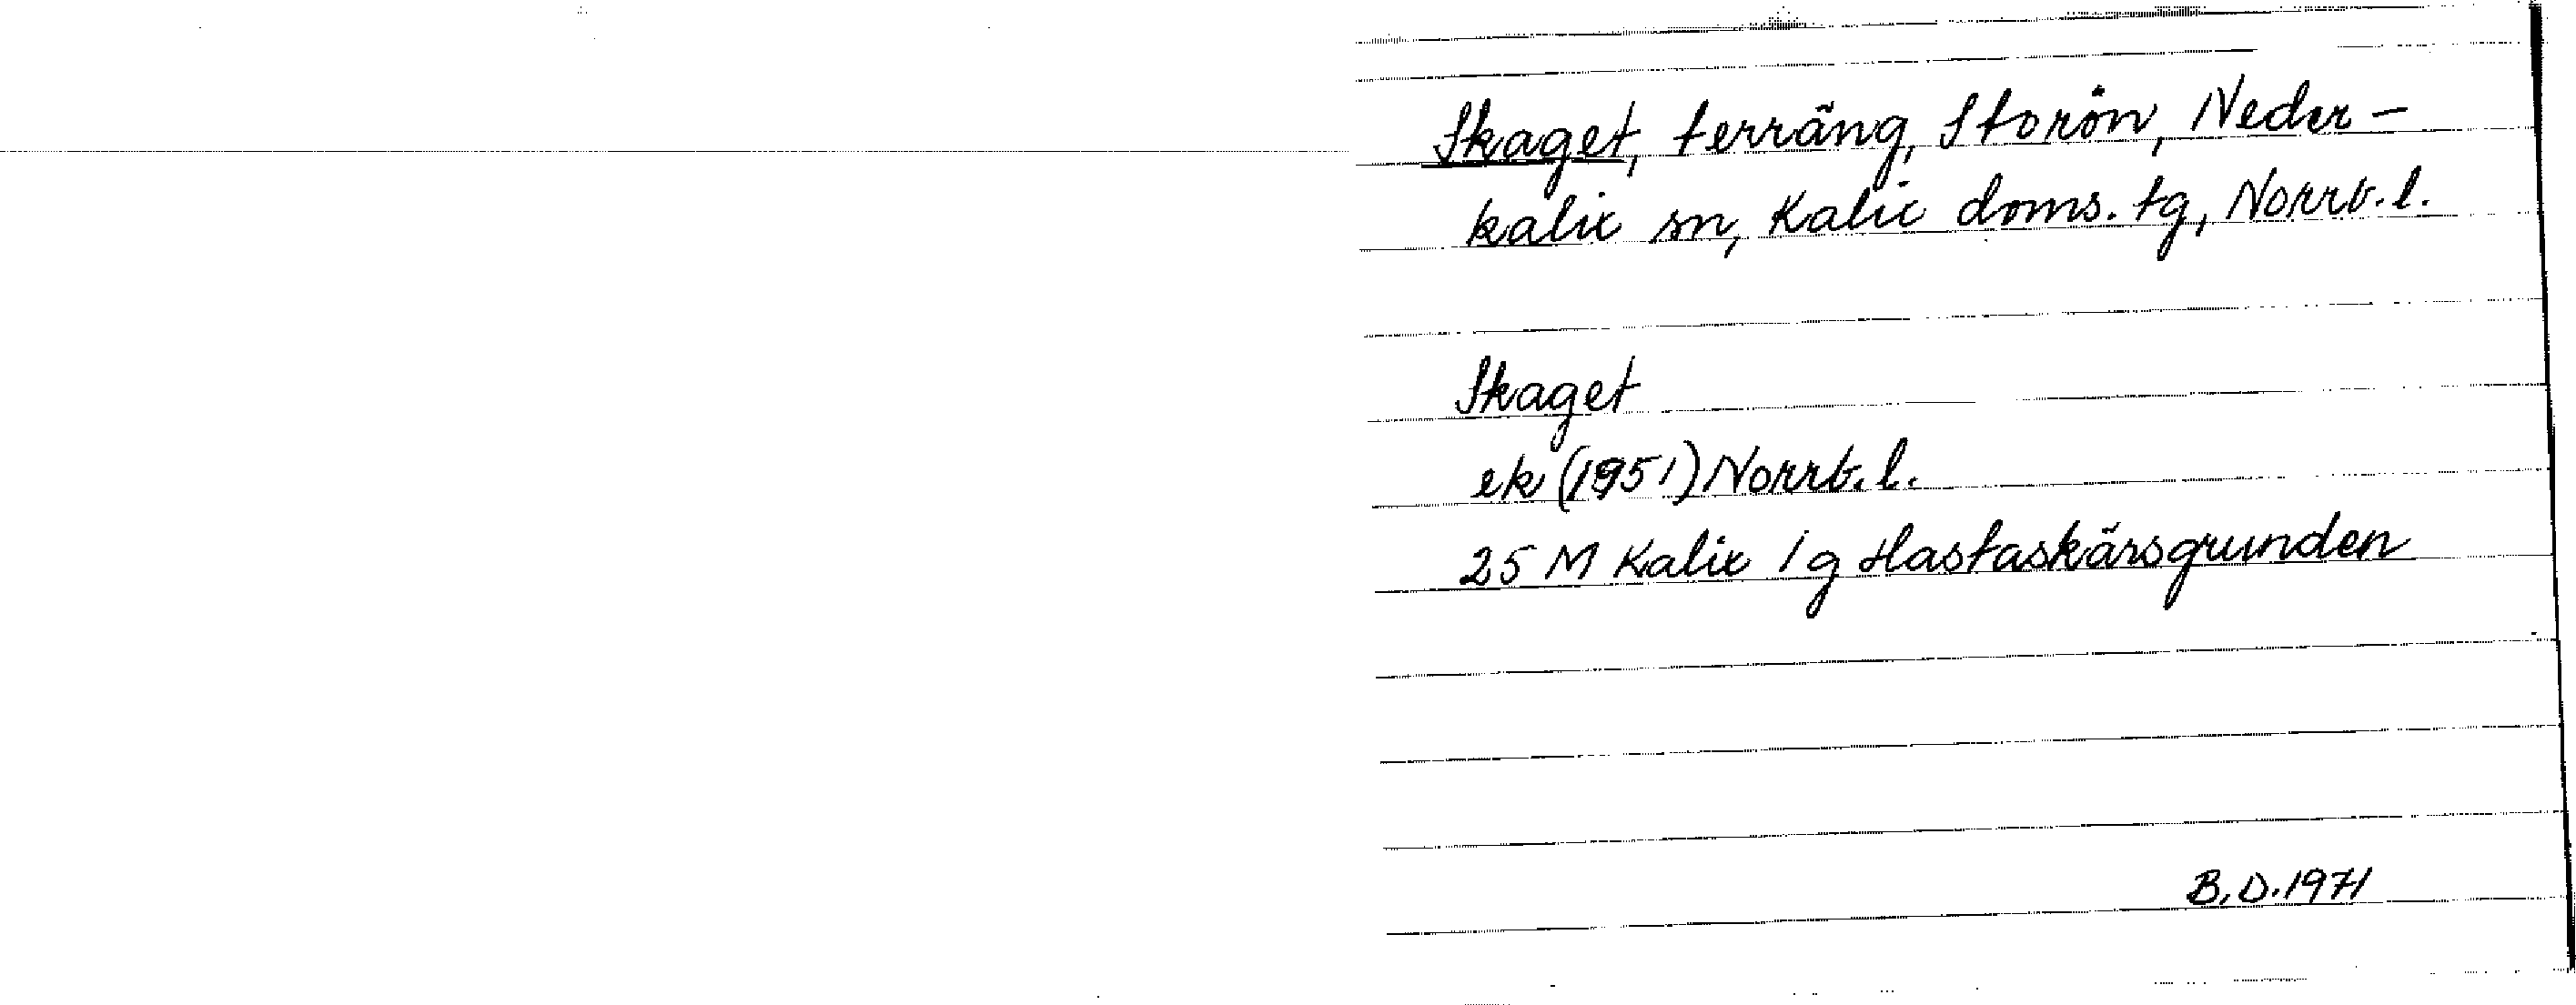 Skaget, terräng, Storön, Neder-
kalix sn, Kalix doms. tg, Norrb. l.
Skaget
ek (1951) Norrb. l.
25 M Kalix 1 g Hastaskärsgrunden
B.D. 1971